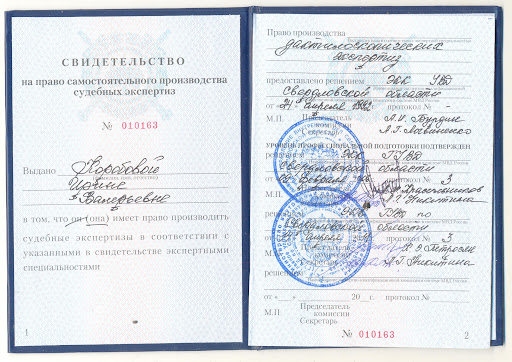 СВИДЕТЕЛЬСТВО
на право самостоятельного производства
судебных экспертиз
№ 010163
Выдано Коробовой
Ирине
Валерьевне
в том, что он (она) имеет право производить
судебные экспертизы в соответствии с
указанными в свидетельстве экспертными
специальностями
1
Право производства
дактилоскопических
экспертиз
предоставлено решением ЭКК УВД
Свердловской области
от "21" апреля 1992 протокол № -
М.П. Председатель
комиссии
Секретарь
УРОВЕНЬ ПРОФЕССИОНАЛЬНОЙ ПОДГОТОВКИ ПОДТВЕРЖДЕН
решением ЭКК ГУВД
Свердловской области
февраля протокол № 3
М.П.
Никитина
решением ЭКК ГУВД по
Свердловской области
апреля протокол № 3
М.П. Председатель
комиссии
Секретарь Никитина
решением
от «__» 20 г. протокол №
М.П. Председатель
комиссии
Секретарь
№ 010163
2